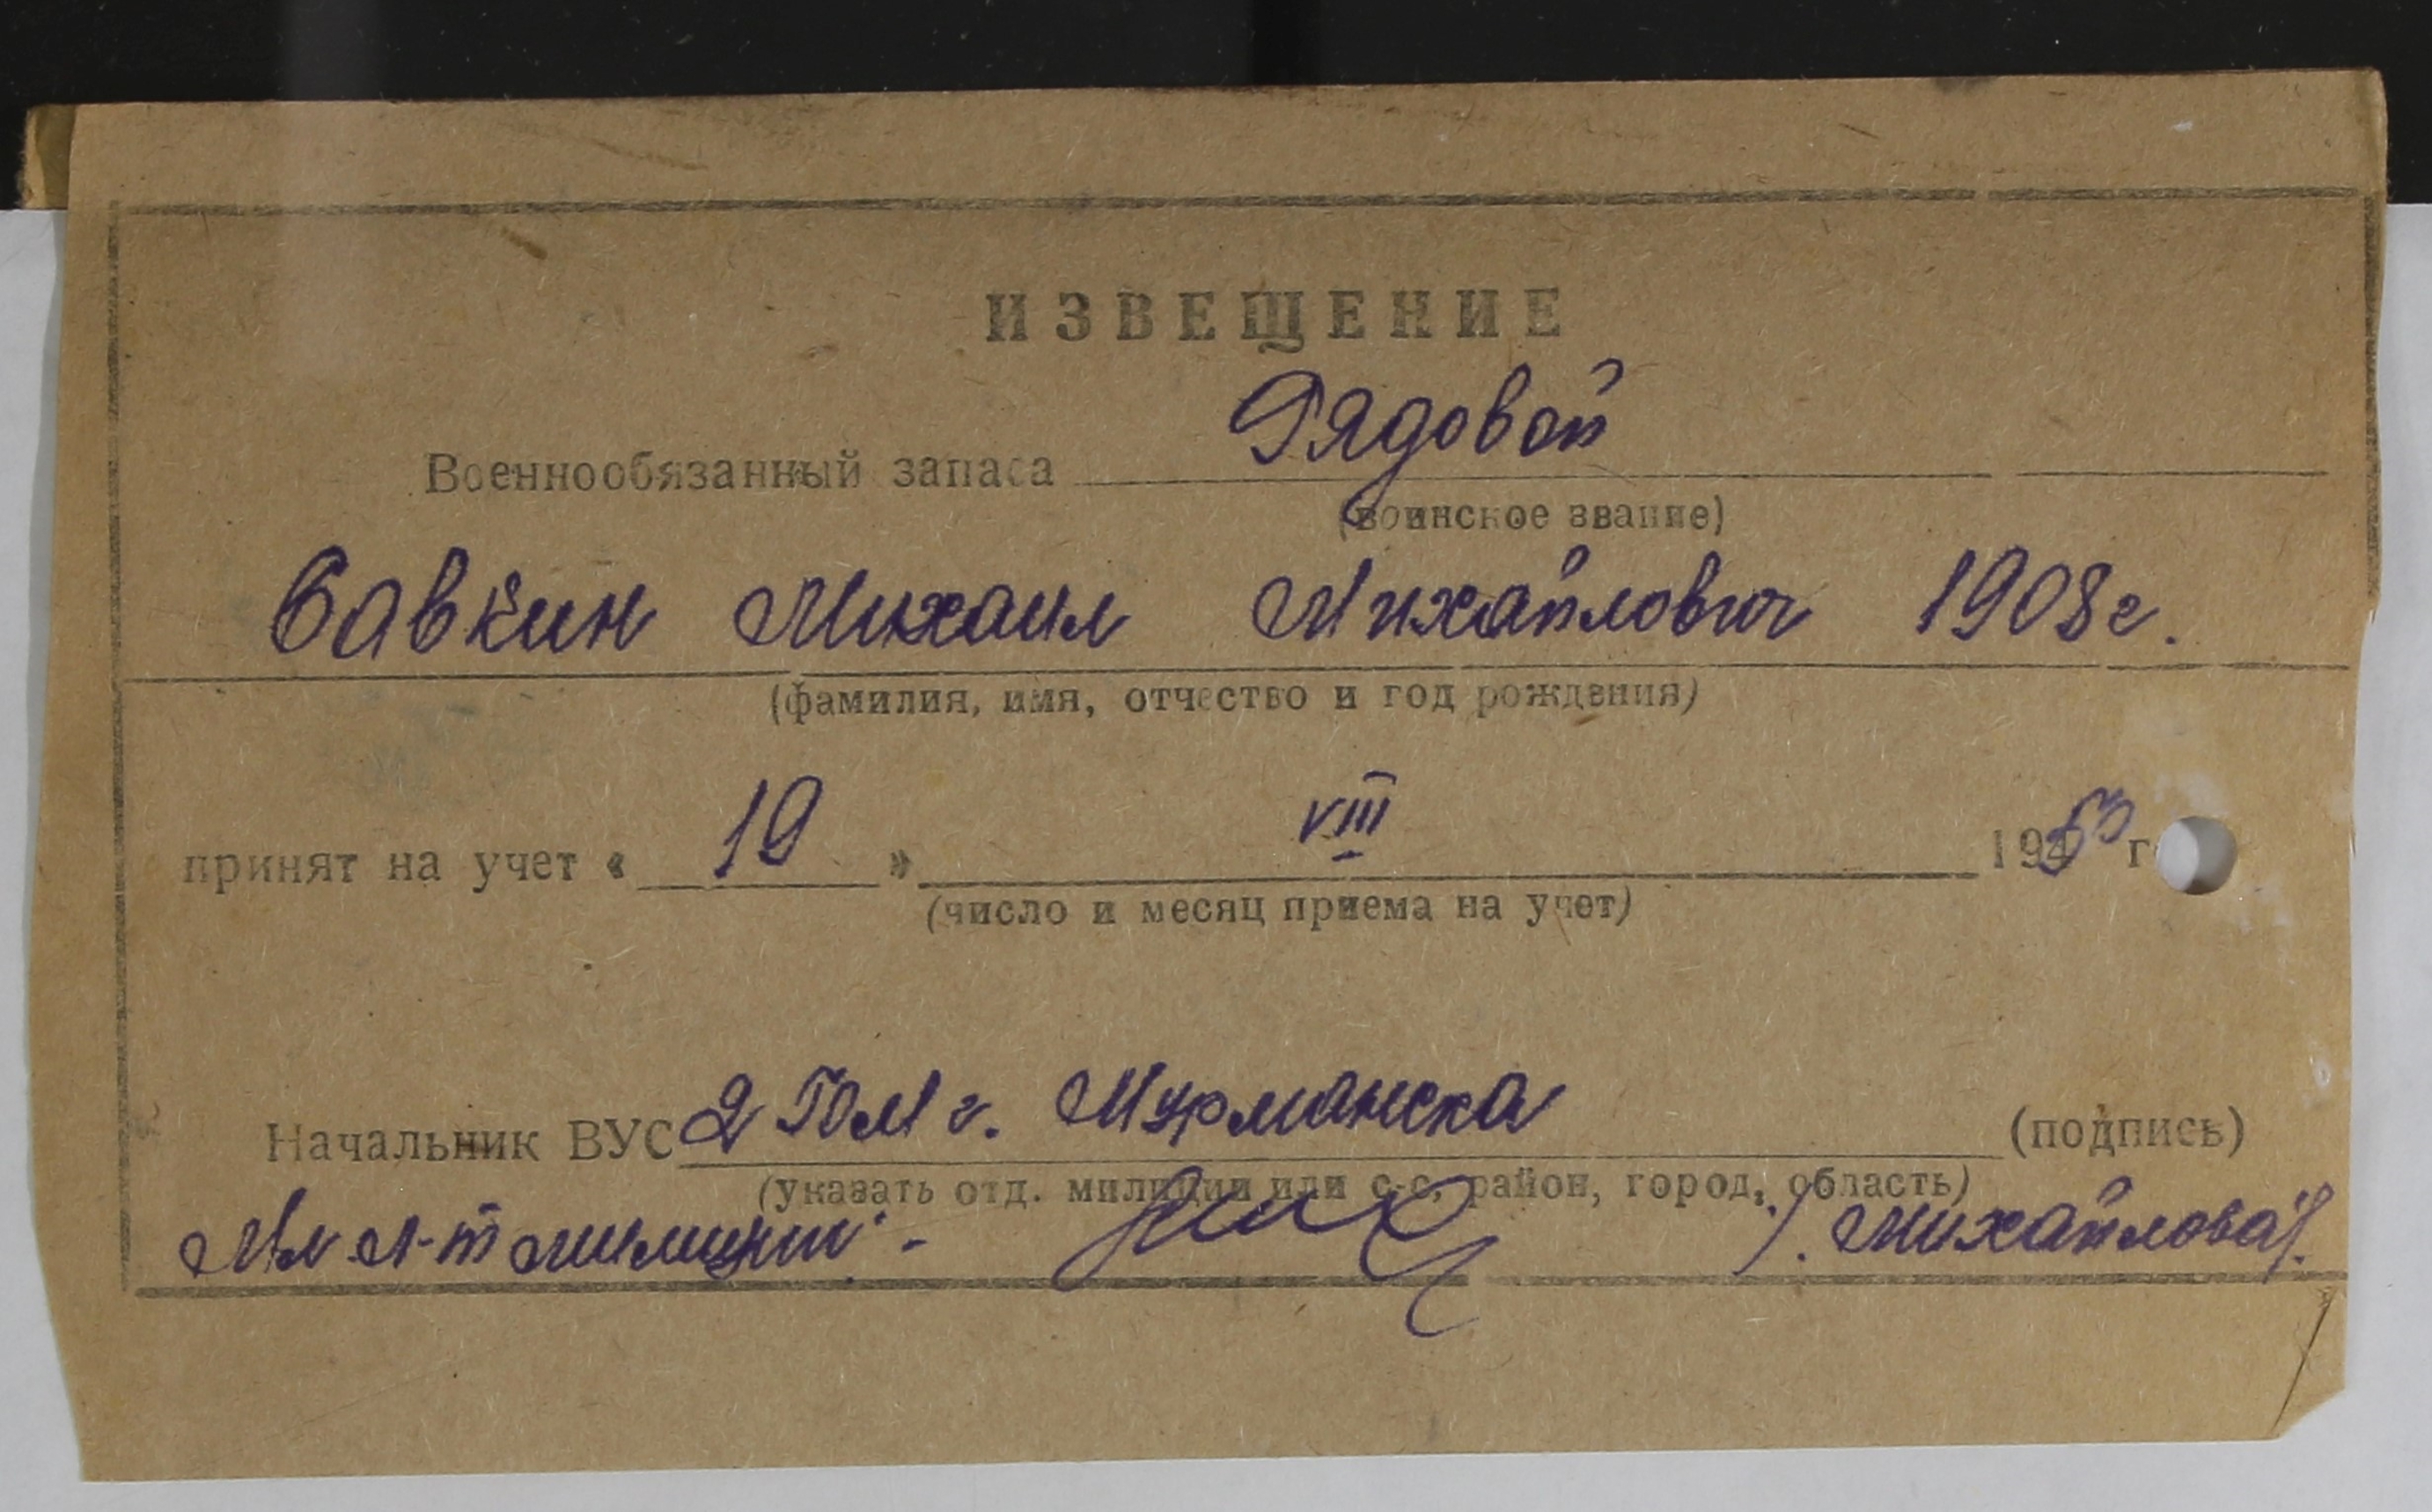 ИЗВЕЩЕНИЕ
Военнообязанный запаса Рядовой
(воинское звание)
Савкин Михаил Михайлович 1908 г.
(фамилия, имя, отчество и год рождения)
принят на учет « 19 » VIII 1953 г
(число и месяц приема на учет)
Начальник ВУС 2 ГОМ г. Мурманска (подпись)
(указать отд. милиции или с-с, район, город, область)
Мл л-т милиции - /. Михайлова/.